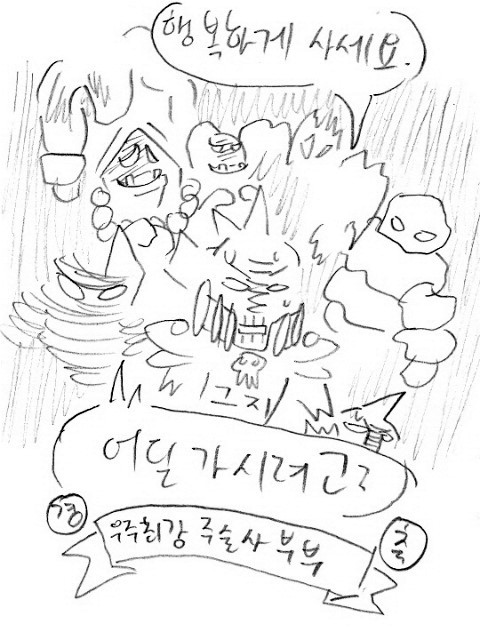 행복하게 사세요.
어딜 가시려고?
경
우주최강 주술사 부부
축